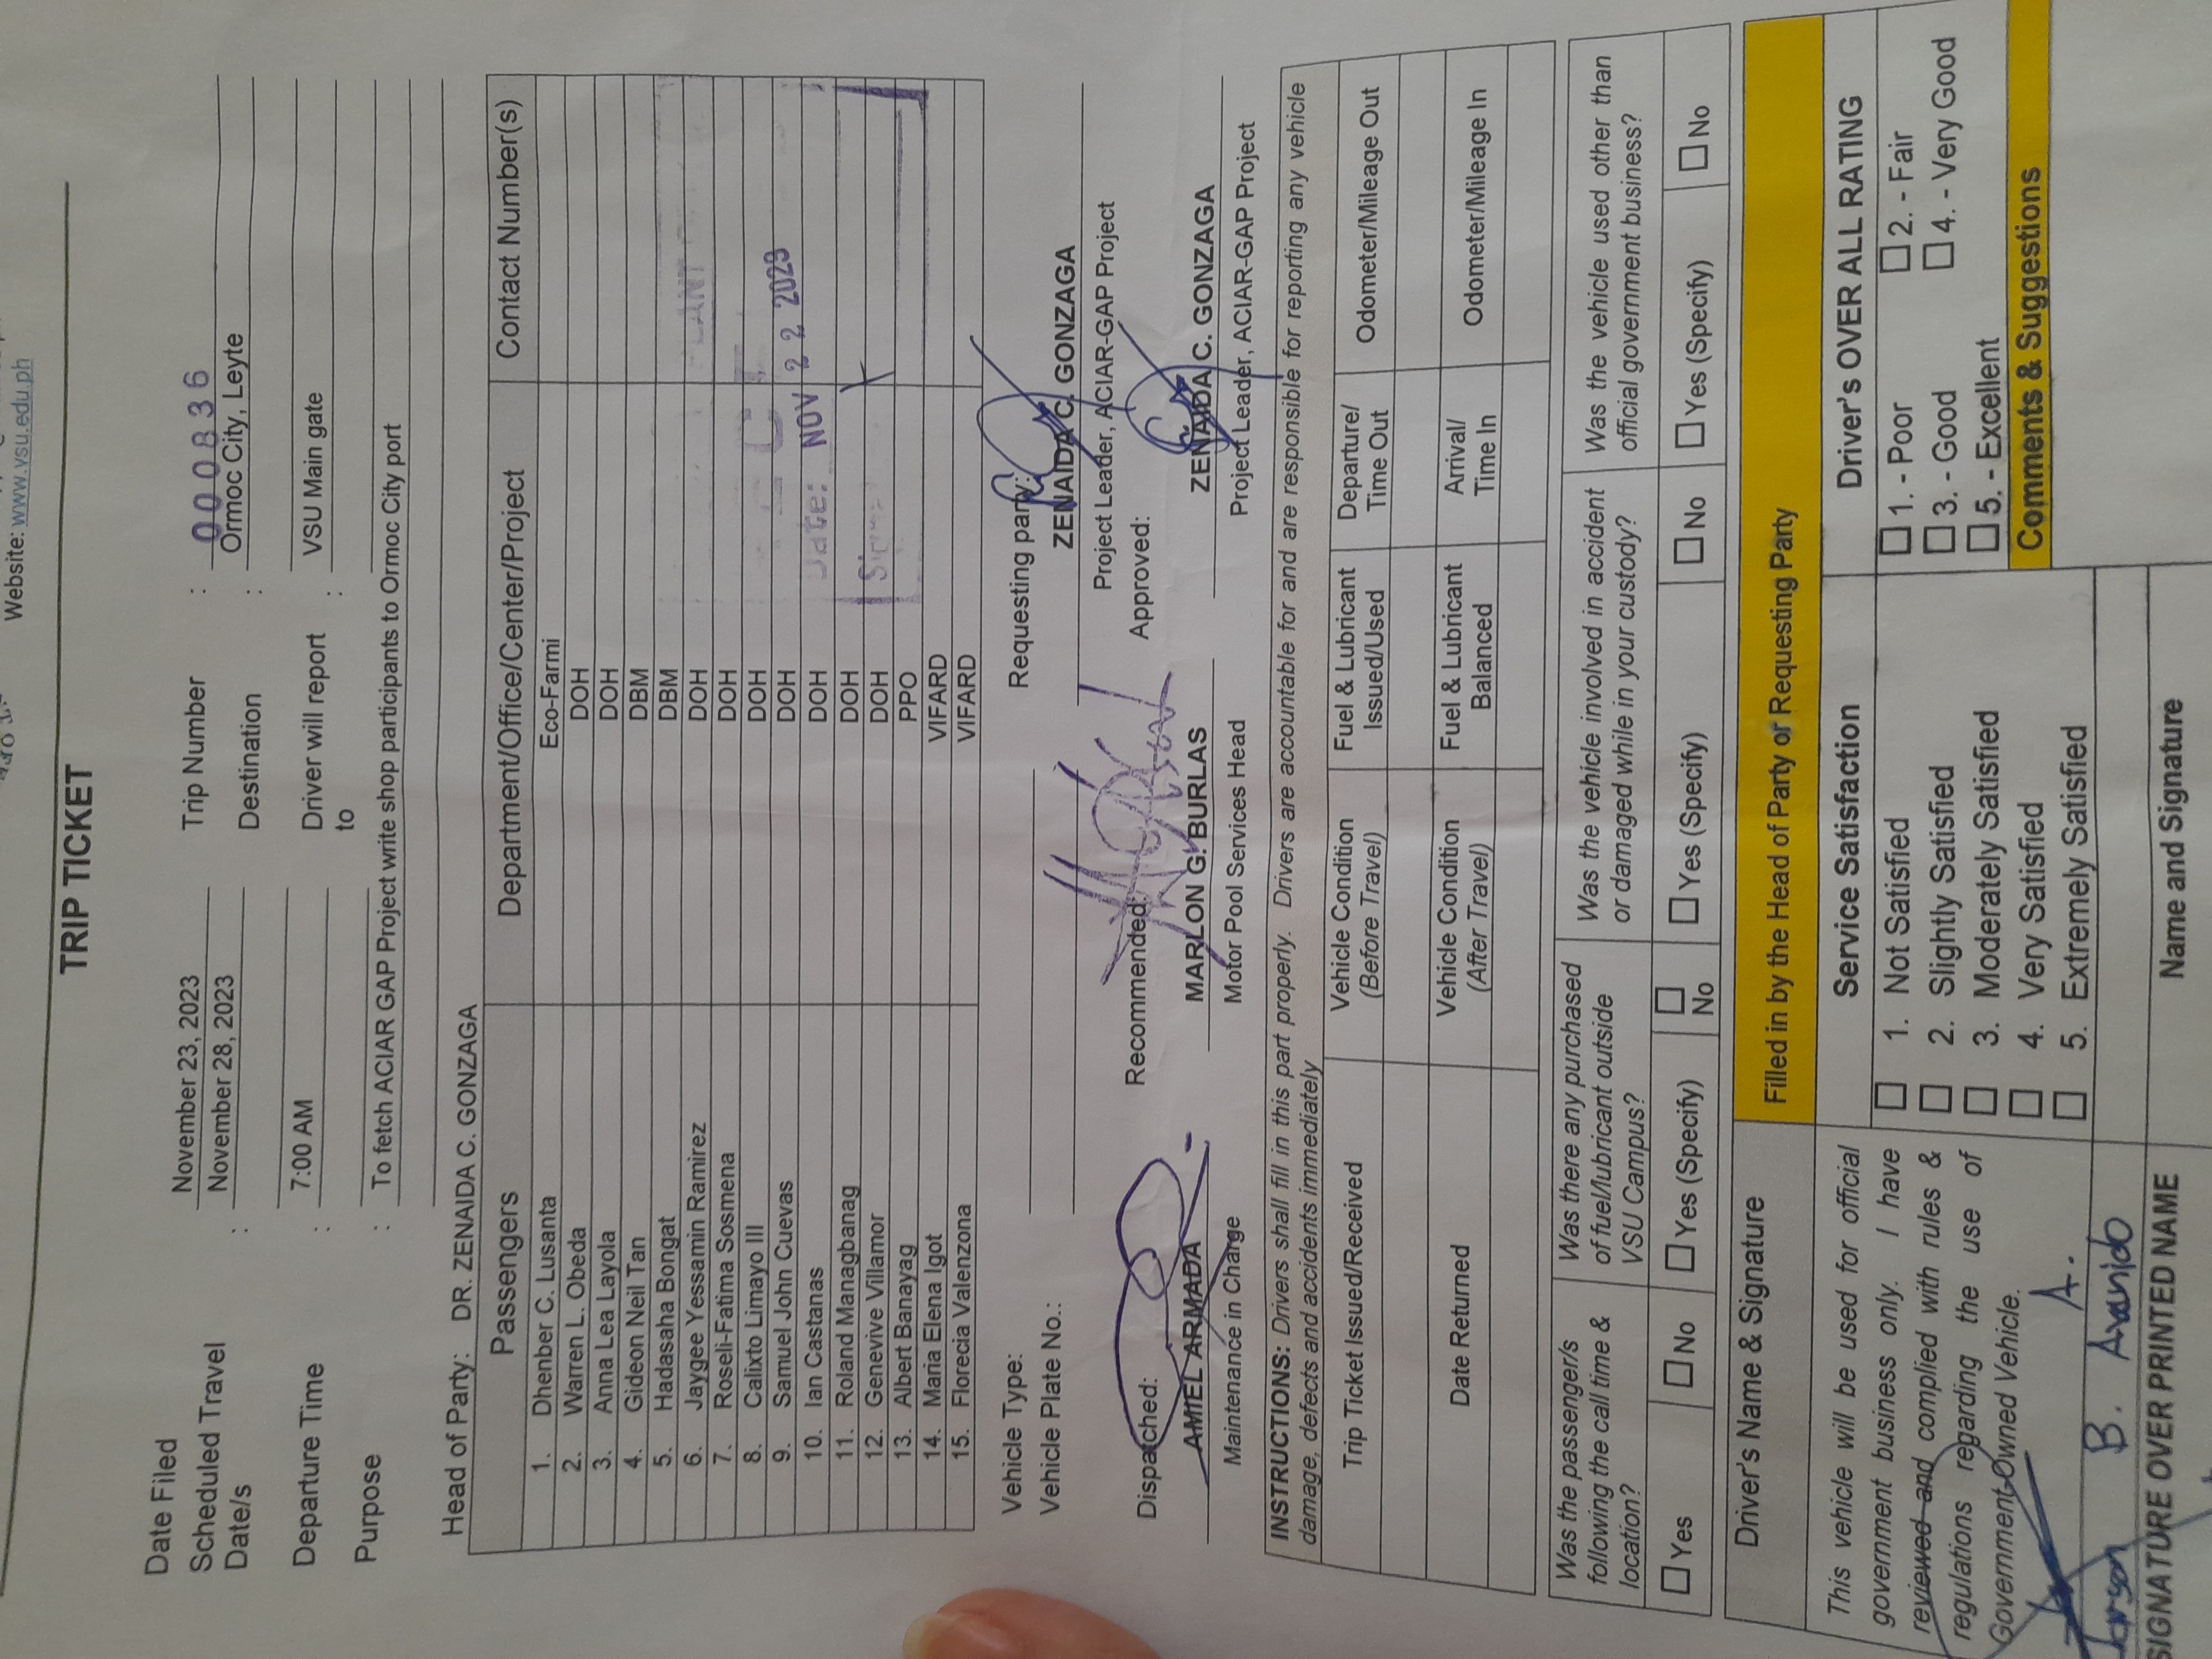 Website: www.vsu.edu.ph
TRIP TICKET
Date Filed November 23, 2023 Trip Number : 000836
Scheduled Travel Date/s : November 28, 2023 Destination : Ormoc City, Leyte
Departure Time : 7:00 AM Driver will report to : VSU Main gate
Purpose : To fetch ACIAR GAP Project write shop participants to Ormoc City port
Head of Party: DR. ZENAIDA C. GONZAGA
Passengers Department/Office/Center/Project Contact Number(s)
1. Dhenber C. Lusanta Eco-Farmi
2. Warren L. Obeda DOH
3. Anna Lea Layola DOH
4. Gideon Neil Tan DBM
5. Hadasaha Bongat DBM
6. Jaygee Yessamin Ramirez DOH
7. Roseli-Fatima Sosmena DOH
8. Calixto Limayo III DOH
9. Samuel John Cuevas DOH
10. Ian Castanas DOH
11. Roland Managbanag DOH
12. Genevive Villamor DOH
13. Albert Banayag PPO
14. Maria Elena Igot VIFARD
15. Florecia Valenzona VIFARD
Date: NOV 22 2023
Vehicle Type: Requesting party:
Vehicle Plate No.: ZENAIDA C. GONZAGA
Project Leader, ACIAR-GAP Project
Dispatched: Recommended: Approved:
AMIEL ARMADA MARLON G. BURLAS ZENAIDA C. GONZAGA
Maintenance in Charge Motor Pool Services Head Project Leader, ACIAR-GAP Project
INSTRUCTIONS: Drivers shall fill in this part properly. Drivers are accountable for and are responsible for reporting any vehicle
damage, defects and accidents immediately
Trip Ticket Issued/Received Vehicle Condition (Before Travel) Fuel & Lubricant Issued/Used Departure/ Time Out Odometer/Mileage Out
Date Returned Vehicle Condition (After Travel) Fuel & Lubricant Balanced Arrival/ Time In Odometer/Mileage In
Was the passenger/s following the call time & location? Was there any purchased of fuel/lubricant outside VSU Campus? Was the vehicle involved in accident or damaged while in your custody? Was the vehicle used other than official government business?
Yes No Yes (Specify) No Yes (Specify) No Yes (Specify) No
Driver's Name & Signature Filled in by the Head of Party or Requesting Party
This vehicle will be used for official
government business only. I have
reviewed and complied with rules &
regulations regarding the use of
Government-Owned Vehicle.
Service Satisfaction
1. Not Satisfied
2. Slightly Satisfied
3. Moderately Satisfied
4. Very Satisfied
5. Extremely Satisfied
Driver's OVER ALL RATING
1. - Poor 2. - Fair
3. - Good 4. - Very Good
5. - Excellent
Comments & Suggestions
B. A.
SIGNATURE OVER PRINTED NAME Name and Signature